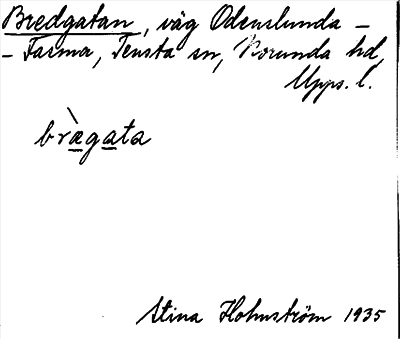 Bredgatan, väg Odenslunda –
– Tasma, Tensta sn, Norunda hd,
Upps. l.
brægata
Stina Holmström 1935